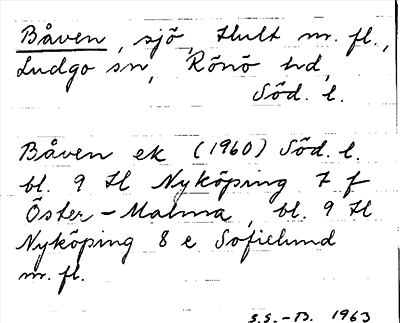 Båven, sjö, Hult m. fl.,
Ludgo sn, Rönö hd,
Söd. l.
Båven ek (1960) Söd. l.
bl. 9 H Nyköping 7 f
Öster-Malma, bl. 9 H
Nyköping 8 e Sofielund
m. fl.
S.S.-B. 1963